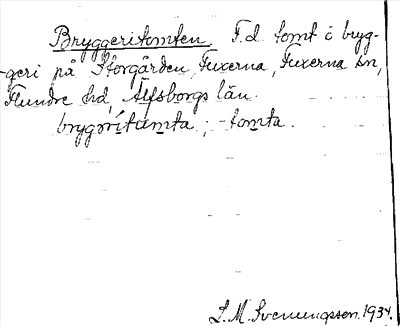 Bryggeritomten. F.d. tomt i bryg-
-geri på Storgården, Fuxerna, Fuxerna sn,
Flundre hd, Älfsborgs län.
bryggǝrítùmta; -tomta.
L. M. Svenungsson. 1934.